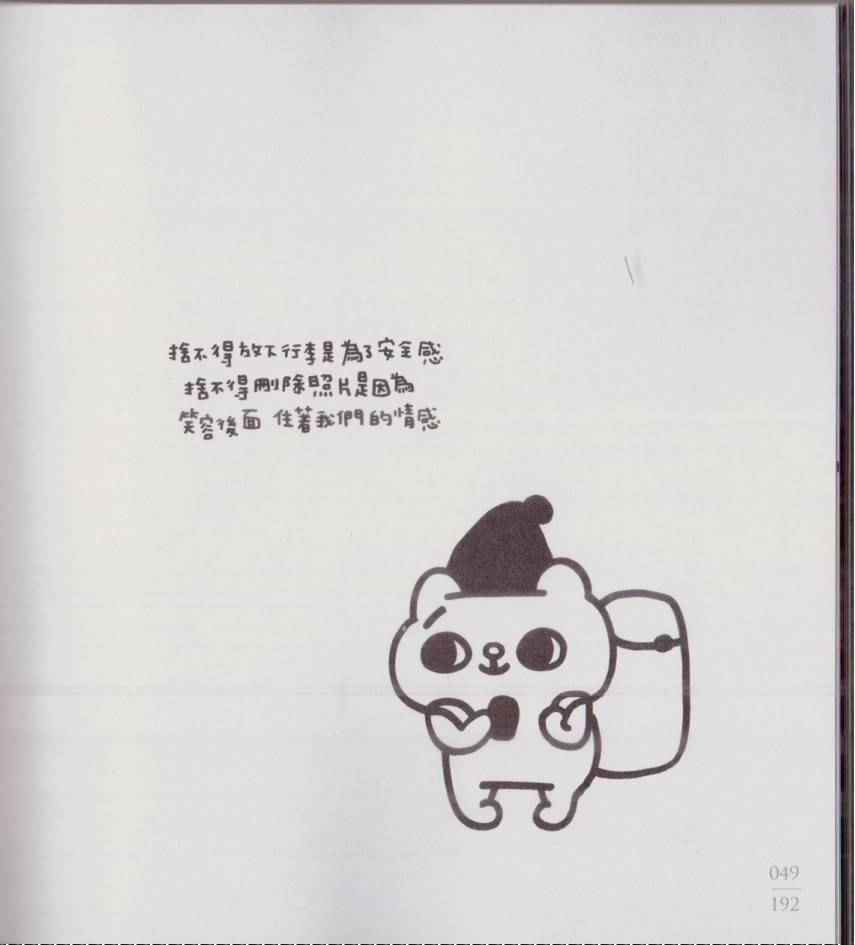 捨不得放下行李是為了安全感
捨不得刪除照片是因為
笑容後面 住著我們的情感
049
192